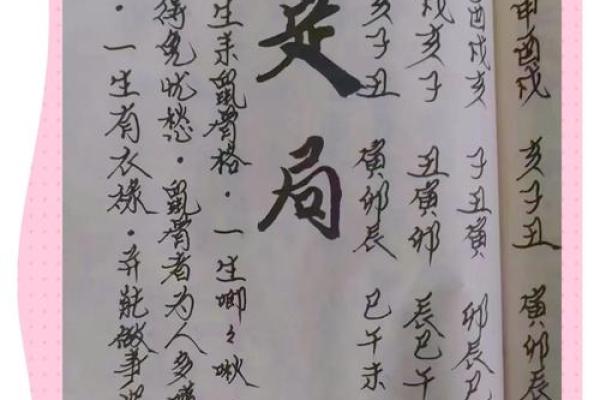 申酉戌 亥子丑 寅卯辰
酉戌亥 子丑寅 卯辰巳
戌亥子 丑寅卯 辰巳午
亥子丑 寅卯辰 巳午未
局
生来鼠骨格·一生唧々啾
得免忧愁·鼠骨者为人多
·一生有衣禄·并能做事